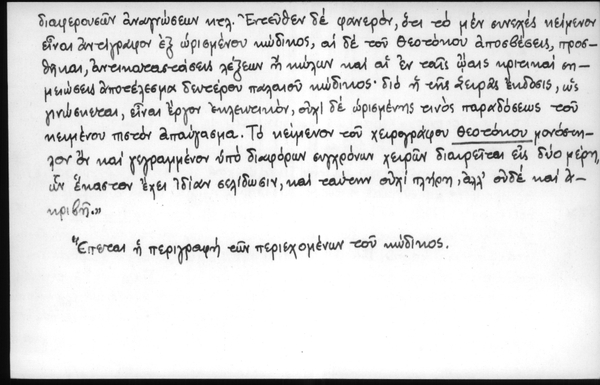 διαφερουσῶν ἀναγνώσεων κτλ. Ἐντεῦθεν δέ φανερόν, ὅτι τό μέν συνεχές κείμενον
εἶναι ἀντίγραφον ἐξ ὡρισμένου κώδικος, αἱ δέ τοῦ Θεοτόκου ἀποσβέσεις, προσ-
θῆκαι, ἀντικαταστάσεις λέξεων ἤ κώλων καί αἱ ἐν ταῖς ᾤαις κριτικαί ση-
μειώσεις ἀποτέλεσμα δευτέρου παλαιοῦ κώδικος· διό ἡ τῆς Σειρᾶς ἔκδοσις, ὡς
γινώσκεται, εἶναι ἔργον ἐκλεκτικόν, οὐχί δέ ὡρισμένης τινός παραδόσεως τοῦ
κειμένου πιστόν ἀπαύγασμα. Τό κείμενον τοῦ χειρογράφου Θεοτόκου μονόστη-
λον ὄν καί γεγραμμένον ὑπό διαφόρων συγχρόνων χειρῶν διαιρεῖται εἰς δύο μέρη,
ὧν ἕκαστον ἔχει ἰδίαν σελίδωσιν, καί ταύτην οὐχί πλήρη, ἀλλ' οὐδέ καί ἀ-
κριβῆ.»
Ἕπεται ἡ περιγραφή τῶν περιεχομένων τοῦ κώδικος.